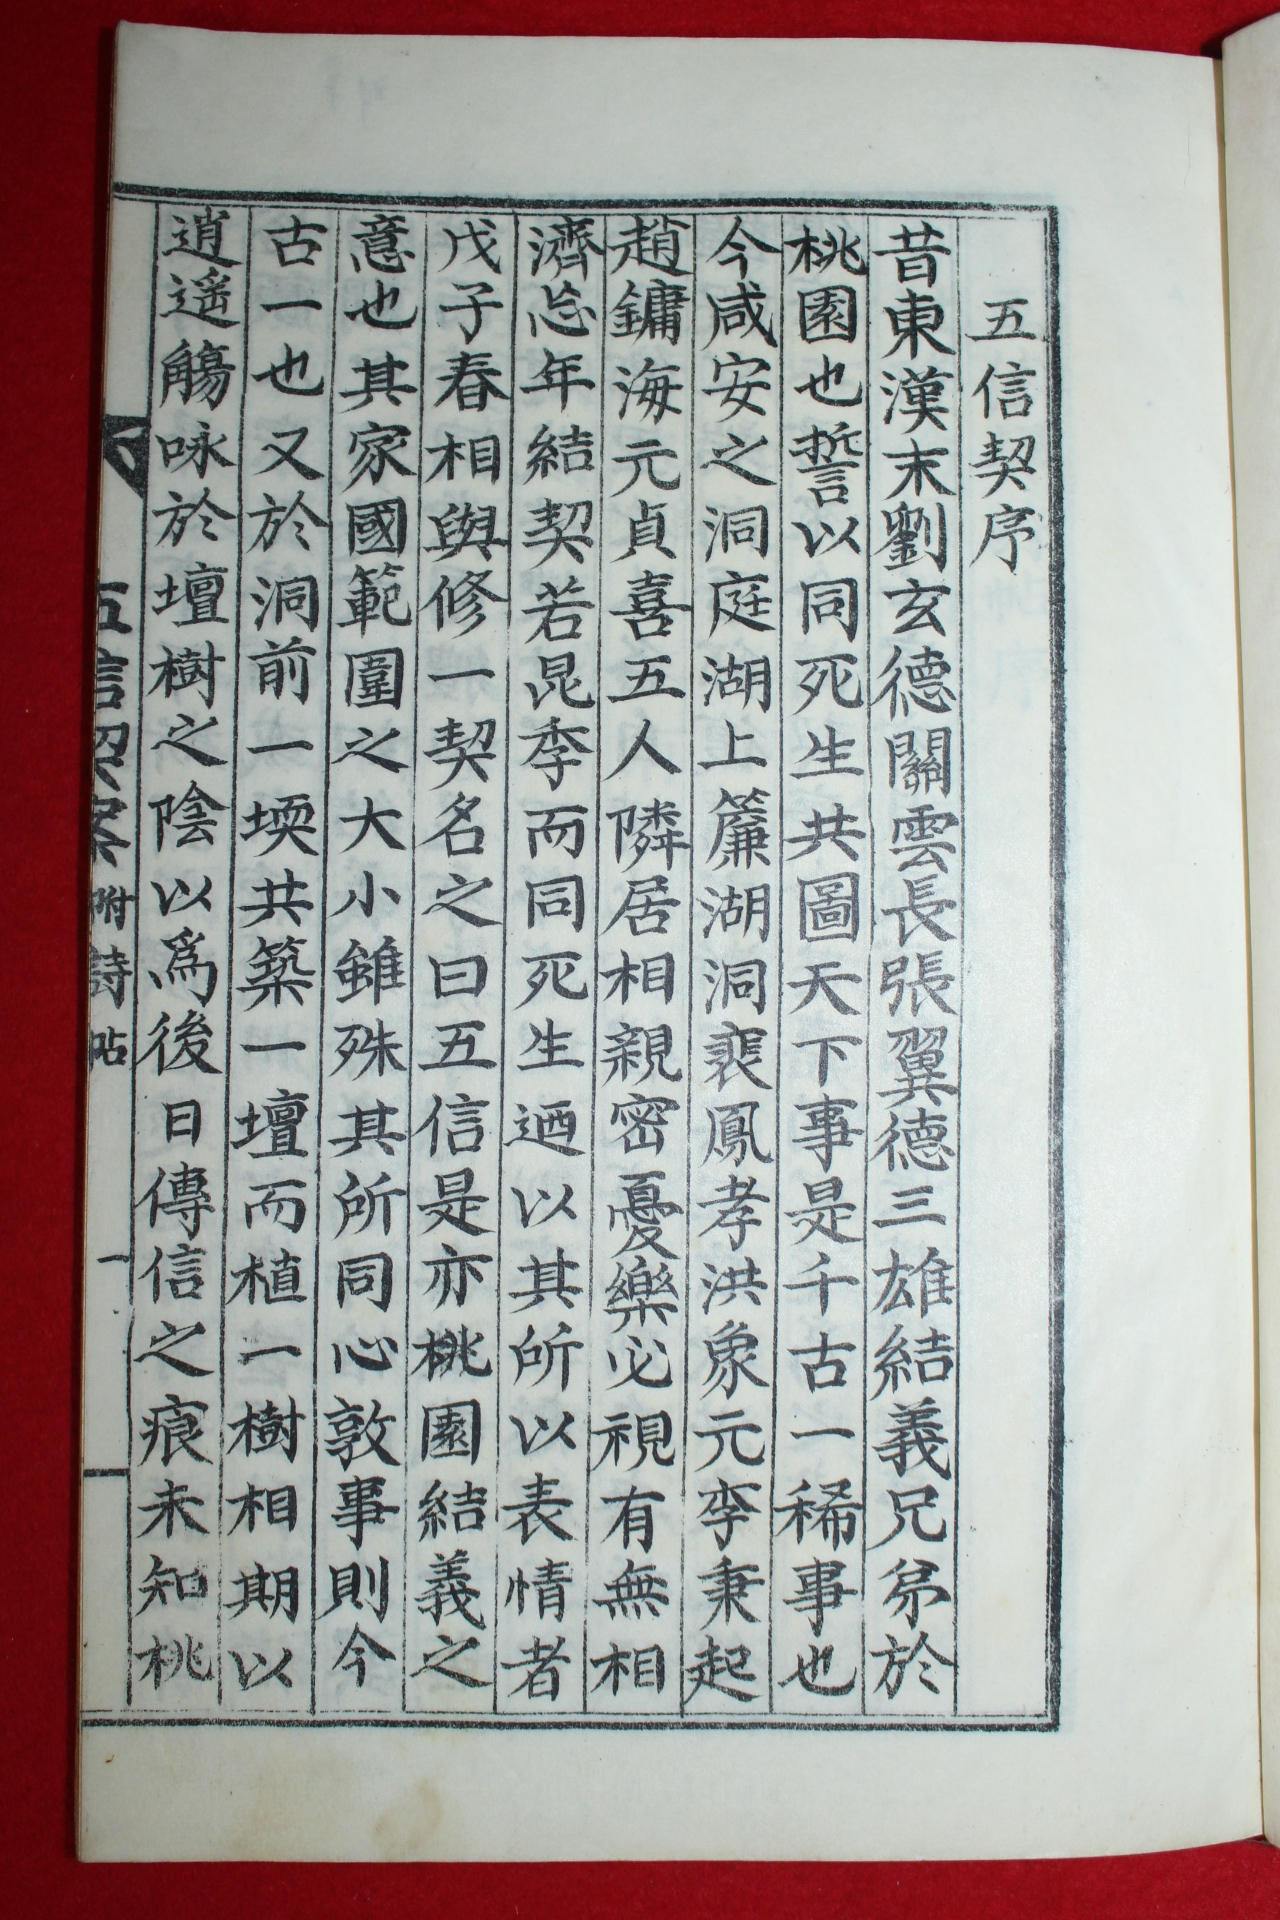 五信契序
昔東漢末劉玄德關雲長張翼德三雄結義兄弟於
桃園也誓以同死生共圖天下事是千古一稀事也
今咸安之洞庭湖上簾湖洞裵鳳孝洪象元李秉起
趙鏞海元貞喜五人隣居相親密憂樂必視有無相
濟忘年結契若昆季而同死生迺以其所以表情者
戊子春相與修一契名之曰五信是亦桃園結義之
意也其家國範圍之大小雖殊其所同心敦事則今
古一也又於洞前一堧共築一壇而植一樹相期以
逍遥觴咏於壇樹之陰以爲後日傳信之痕未知桃
五信契案 附詩帖 一